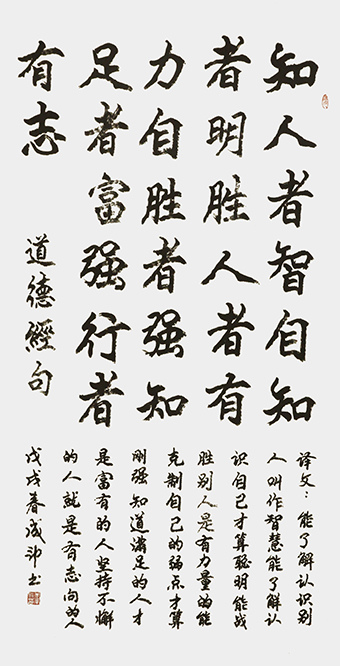 知人者智自知
者明胜人者有
力自胜者强知
足者富强行者
有志
道德經句
译文：能了解认识别
人叫作智慧能了解认
识自己才算聪明能战
胜别人是有力量的能
克制自己的弱点才算
刚强知道满足的人才
是富有的人坚持不懈
的人就是有志向的人
戊戌春成沖书